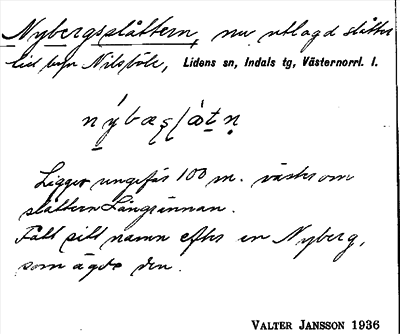 Nybergsslåttern, nu utlagd slåtter
vid byn Nilsböle, Lidens sn, Indals tg, Västernorrl. l.
Ligger ungefär 100 m. väster om
slåttern Långrännan.
Fått sitt namn efter en Nyberg,
som ägde den.
VALTER JANSSON 1936